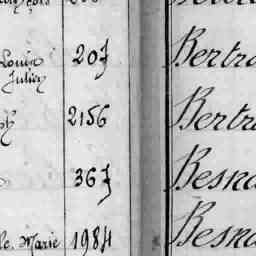 Louise 207 Bertra
Julien
2156 Bertra
367 Besna
le. Marie 1984 Besna